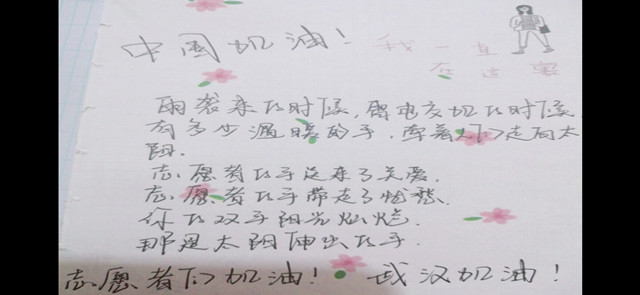 中國加油！
我一直
在這裏
雨袭来的时候，雷电交加的时候
有多少温暖的手，牵着人们走向太
阳.
志愿者的手送来了关爱.
志愿者的手带走了忧愁.
你的双手阳光灿烂.
那是太阳伸出的手.
志愿者们加油！ 武汉加油！